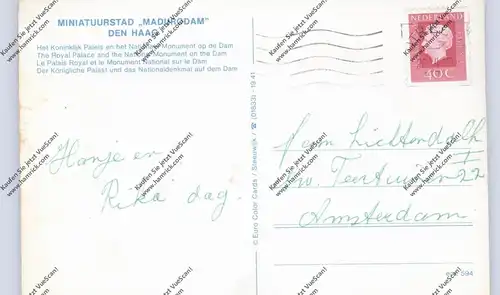 MINIATUURSTAD „MADURODAM"
DEN HAAG
Het Koninklijk Paleis en het Nationale Monument op de Dam
The Royal Palace and the National Monument on the Dam
Le Palais Royal et le Monument National sur le Dam
Der Königliche Palast und das Nationaldenkmal auf dem Dam
NEDERLAND
40 C
Hansje en
Rika dag.
© Euro Color Cards / Steenwijk - ☎ (01633) - 1941
Fam
22
Amsterdam
594
Kaufen Sie jetzt VueScan!
www.hamrick.com